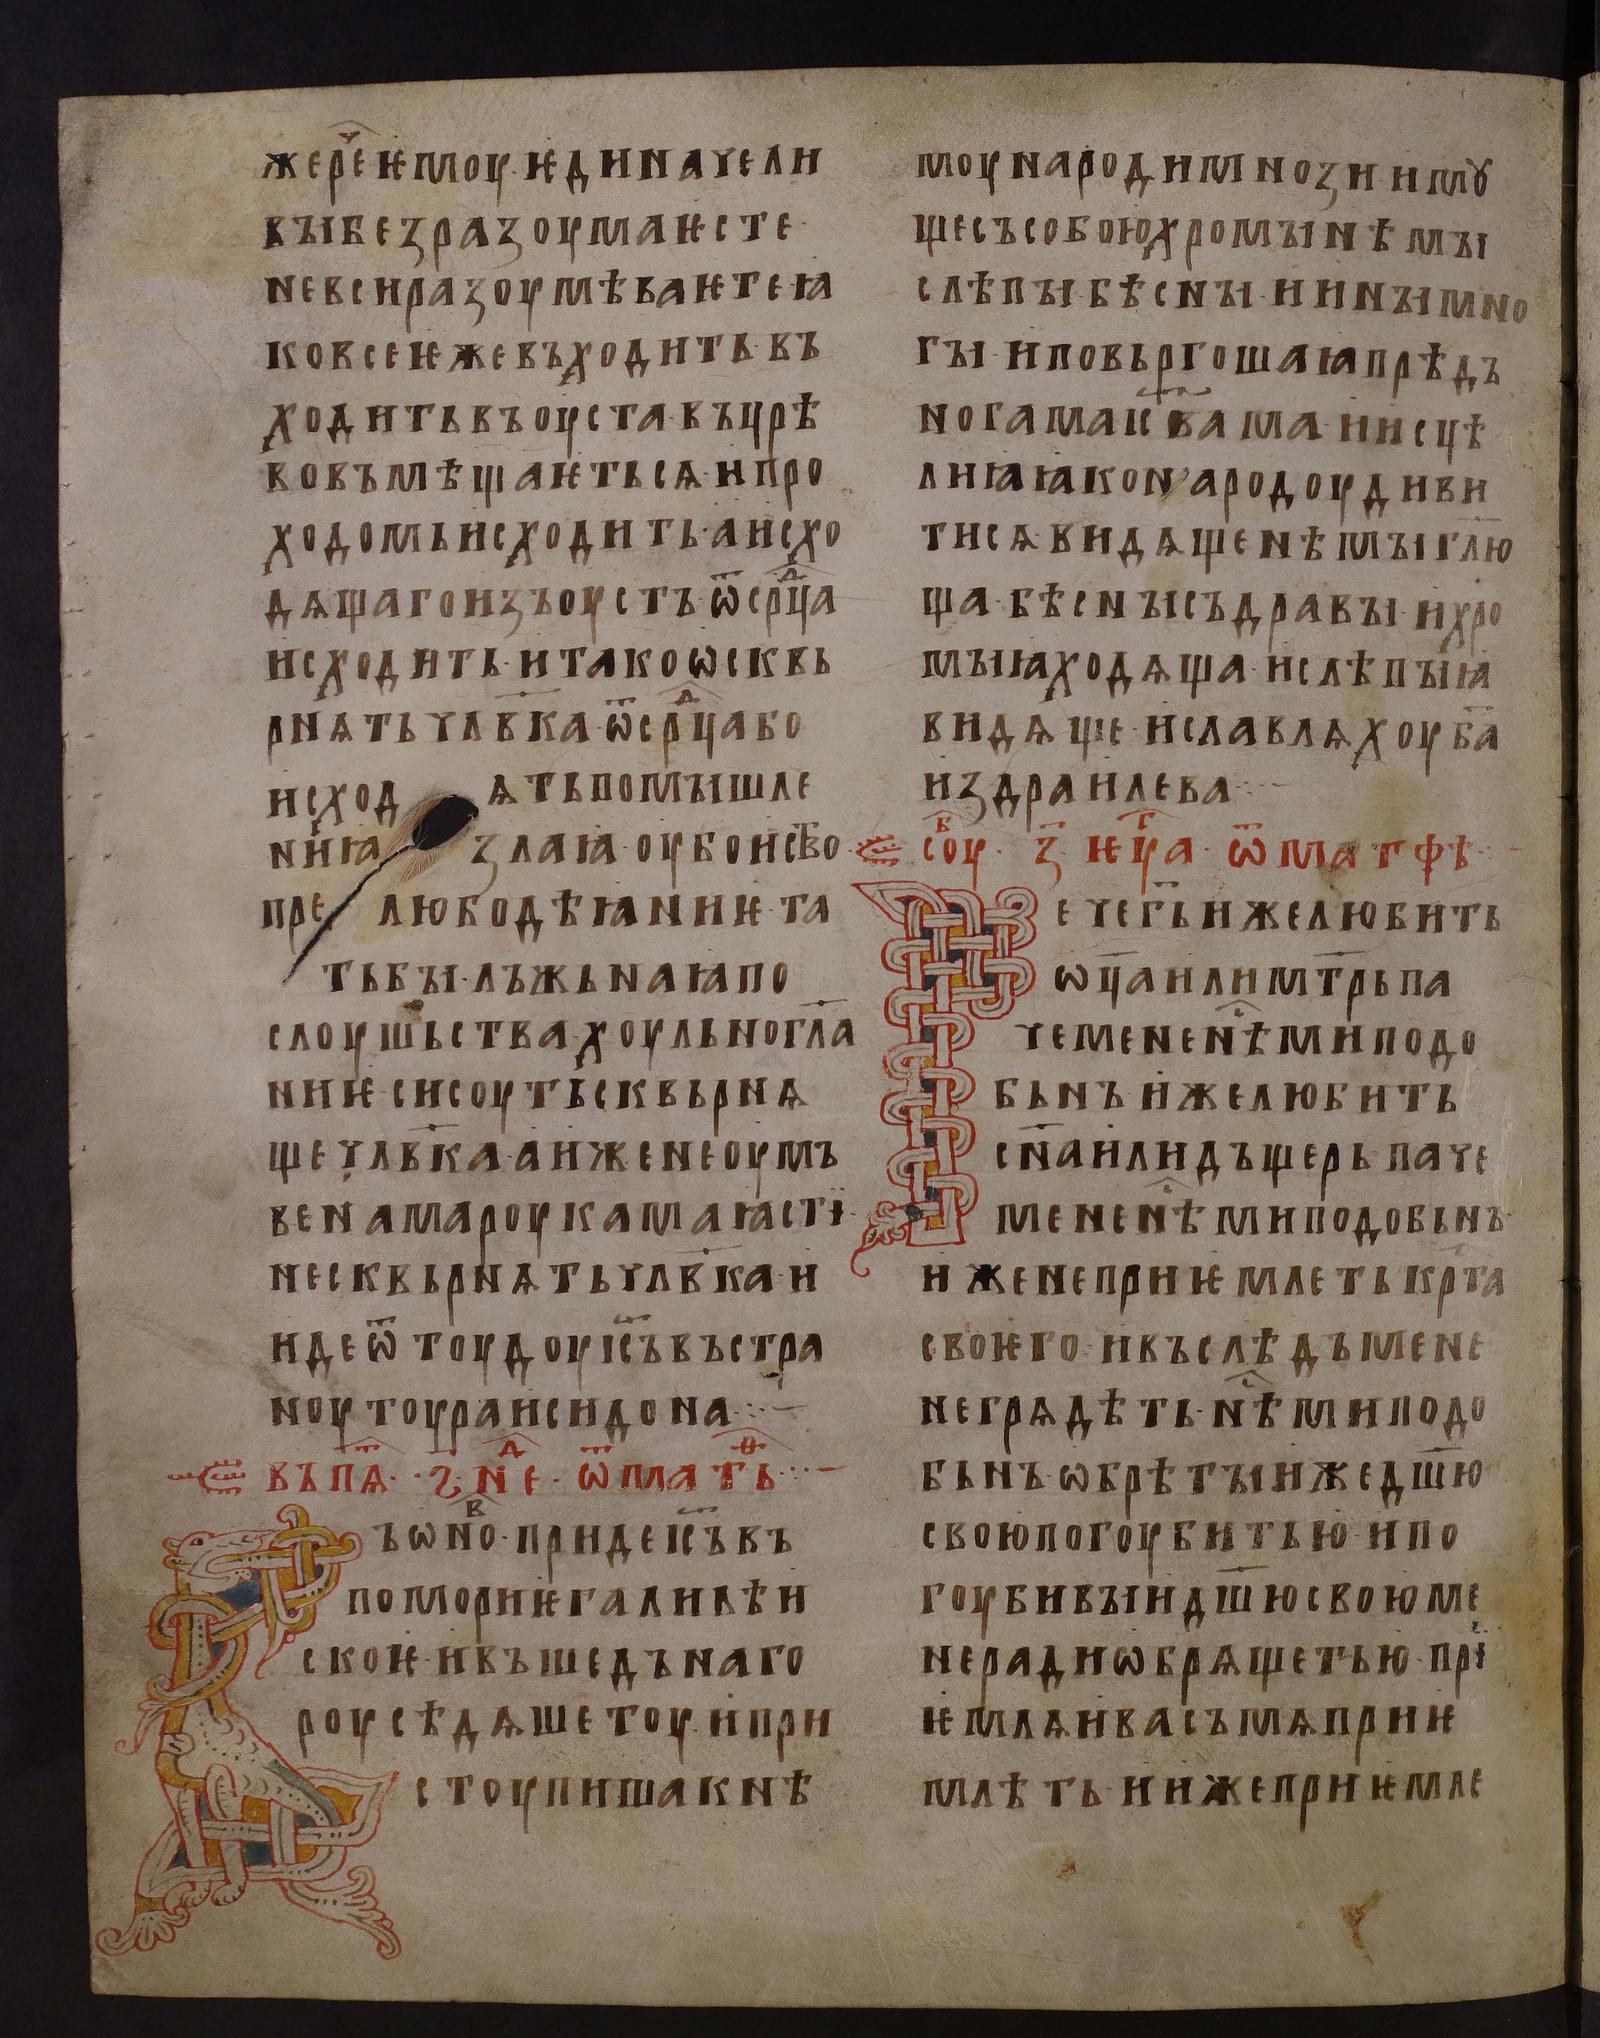 жерече ѥмоу ѥдиначе ли
вꙑ без разоума ѥсте·
не вси разоумѣваѥте ꙗ
ко все ѥже въходить въ
ходить въ оуста· въ црѣ
во въмѣщаѥть сѧ· и про
ходомь исходить· а исхо
дѧщаго изъ оустъ· ѿ срдца
исходить· и тако ѡсквь
рнѧть члвка· ѿ срдца бо
исход ѧть помꙑшле
ниꙗ злаꙗ· оубоиство·
пре любодѣꙗниѥ· та
тьбꙑ· лъжьнаꙗ по
слоушьства· хоульно гла
ниѥ· си соуть скврьнѧ
ще члвка· а иже не оумъ
венама роукама ꙗсти·
не сквьрнѧть члвка· и
иде ѿтоудоу ісъ въ стра
ноу тоура и сидона·:·
въ пѧ· ꙅ· не· ѿ матѳ·:·
ъ ѡно· приде ісъ въ
помориѥ галилѣи
скоѥ· и въшедъ на го
роу сѣдѧше тоу· и при
стоупиша к нѣ
моу народи мнози имꙋ
ще съ собою хромꙑ нѣмꙑ
слѣпꙑ· бѣснꙑ· и инꙑ мно
гꙑ· и повьргоша ꙗ прѣдъ
ногама ісвама· и исцѣ
ли ꙗ ꙗко народоу диви
ти сѧ видѧще нѣмꙑ глю
ща· бѣснꙑ съдравꙑ· и хро
мꙑꙗ ходѧща· и слѣпꙑꙗ
видѧще· и славлѧхоу ба
издраилева·:·
соу· з· ѥуа· ѿ матфѣ·
ече гь иже любить
ѡца или мтрь па
че мене нѣс ми подо
бьнъ· иже любить
сна или дъщерь паче
мене нѣс ми подобьнъ·
иже не приѥмлеть крта
своѥго· и въслѣдъ мене
не грѧдѣть· нѣс ми подо
бьнъ· ѡбрѣтꙑи же дшю
свою погоубить ю· и по
гоубивꙑи дшю свою ме
не ради ѡбрѧщеть ю· при
ѥмлѧи васъ мѧ приѥ
млѣть· и иже приѥмле